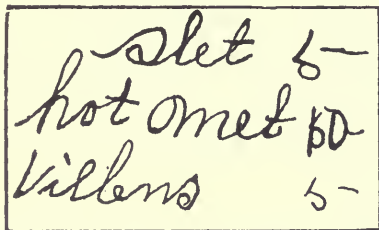 slet 5-
hot omet 50
Villens 5-